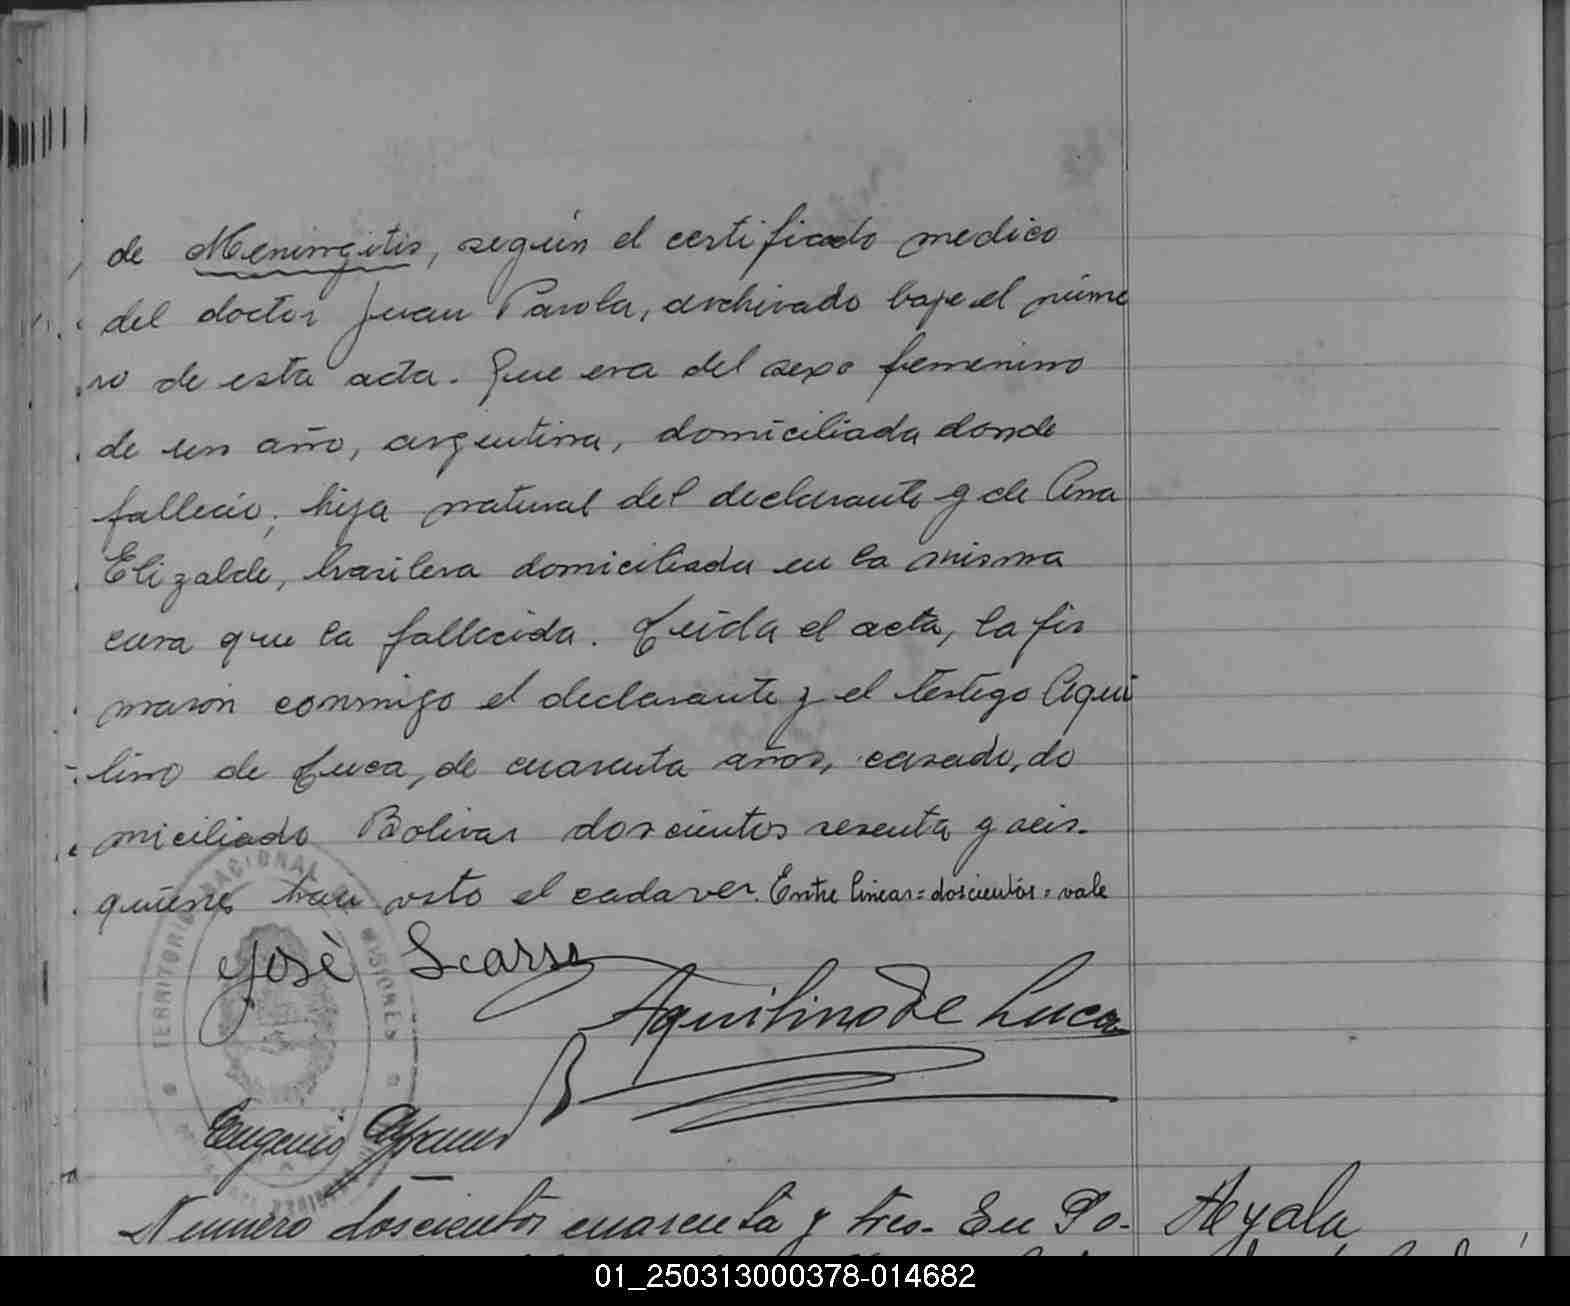 de Meningitis, según el certificado medico
del doctor Juan Parola, archivado bajo el núme
ro de esta acta. Que era del sexo femenino
de un año, argentina, domiciliada donde
falleció, hija natural del declarante y de Ana
Elizalde, brasilera domiciliada en la misma
casa que la fallecida. Leída el acta, la fir
maron conmigo el declarante y el testigo Aqui
lino de Luca, de cuarenta años, casado, do
miciliado Bolivar doscientos sesenta y seis.
quienes han visto el cadaver. Entre lineas=doscientos=vale
José Scarso
Aquilino de Luca
TERRITORIO NACIONAL MISIONES
Eugenio
Numero doscientos cuarenta y tres. En Po- Ayala
01_250313000378-014682